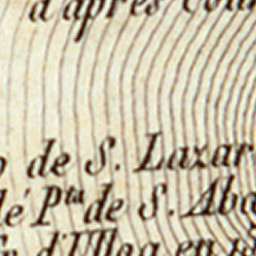 d'après
de S. Lazar
Pta de S. Aba
d'Ulloa en